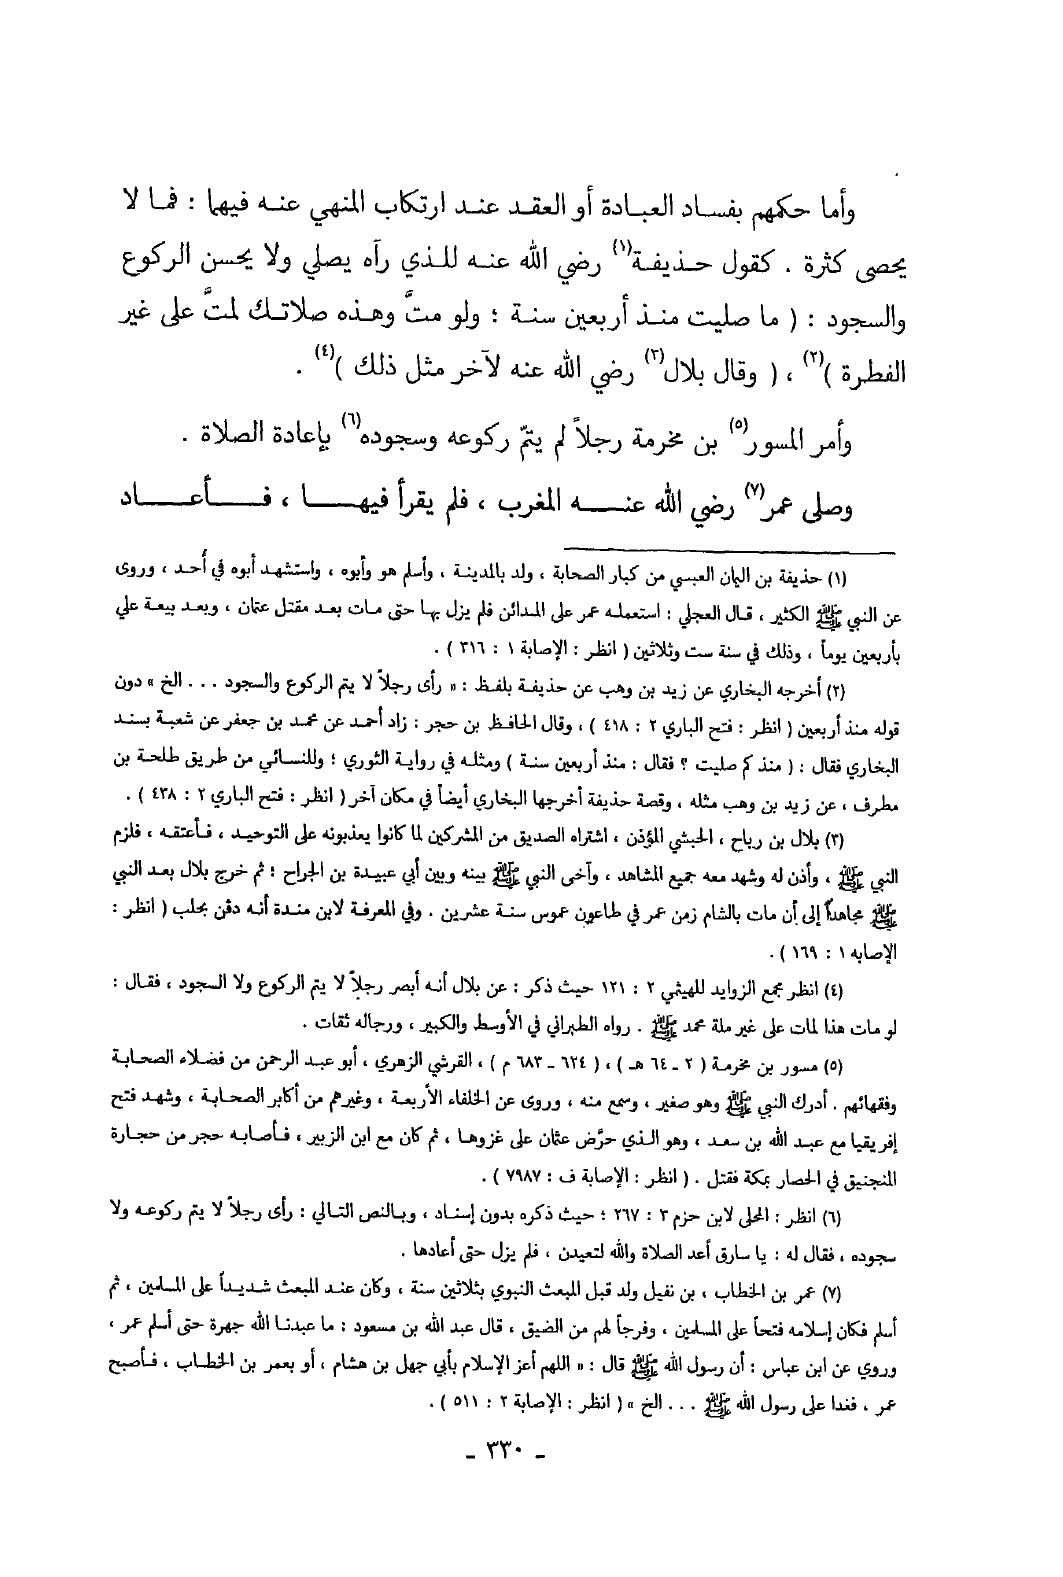 وأما حكمهم بفساد العبادة أو العقد عند ارتكاب المنهي عنه فيها : فما لا
يحصى كثرة . كقول حذيفة(١) رضي الله عنه للذي رآه يصلي ولا يحسن الركوع
والسجود : ( ما صليت منذ أربعين سنة ؛ ولو متَّ وهذه صلاتك لمتَّ على غير
الفطرة )(٢) ، ( وقال بلال(٣) رضي الله عنه لآخر مثل ذلك )(٤) .
وأمر المسور(٥) بن مخرمة رجلاً لم يتمّ ركوعه وسجوده(٦) بإعادة الصلاة .
وصلى عمر(٧) رضي الله عنه المغرب ، فلم يقرأ فيها ، فأعاد
(١) حذيفة بن اليمان العبسي من كبار الصحابة ، ولد بالمدينة ، وأسلم هو وأبوه ، واستشهد أبوه في أُحد ، وروى
عن النبي ﷺ الكثير ، قال العجلي : استعمله عمر على المدائن فلم يزل بها حتى مات بعد مقتل عثمان ، وبعد بيعة علي
بأربعين يوماً ، وذلك في سنة ست وثلاثين ( انظر : الإصابة ١ : ٣١٦ ) .
(٢) أخرجه البخاري عن زيد بن وهب عن حذيفة بلفظ : « رأى رجلاً لا يتم الركوع والسجود ... الخ » دون
قوله منذ أربعين ( انظر : فتح الباري ٢ : ٤١٨ ) ، وقال الحافظ بن حجر : زاد أحمد عن محمد بن جعفر عن شعبة بسند
البخاري فقال : ( منذ كم صليت ؟ فقال : منذ أربعين سنة ) ومثله في رواية الثوري ؛ وللنسائي من طريق طلحة بن
مطرف ، عن زيد بن وهب مثله ، وقصة حذيفة أخرجها البخاري أيضاً في مكان آخر ( انظر : فتح الباري ٢ : ٤٣٨ ) .
(٣) بلال بن رباح ، الحبشي المؤذن ، اشتراه الصديق من المشركين لما كانوا يعذبونه على التوحيد ، فأعتقه ، فلزم
النبي ﷺ ، وأذن له وشهد معه جميع المشاهد ، وآخى النبي ﷺ بينه وبين أبي عبيدة بن الجراح ؛ ثم خرج بلال بعد النبي
ﷺ مجاهداً إلى أن مات بالشام زمن عمر في طاعون عموس سنة عشرين . وفي المعرفة لابن مندة أنه دفن بحلب ( انظر :
الإصابه ١ : ١٦٩ ) .
(٤) انظر مجمع الزوايد للهيثمي ٢ : ١٢١ حيث ذكر : عن بلال أنه أبصر رجلاً لا يتم الركوع ولا السجود ، فقال :
لو مات هذا لمات على غير ملة محمد ﷺ . رواه الطبراني في الأوسط والكبير ، ورجاله ثقات .
(٥) مسور بن مخرمة ( ٢ ـ ٦٤ هـ ) ، ( ٦٢٤ ـ ٦٨٣ م ) ، القرشي الزهري ، أبو عبد الرحمن من فضلاء الصحابة
وفقهائهم . أدرك النبي ﷺ وهو صغير ، وسمع منه ، وروى عن الخلفاء الأربعة ، وغيرهم من أكابر الصحابة ، وشهد فتح
إفريقيا مع عبد الله بن سعد ، وهو الذي حرَّض عثمان على غزوها ، ثم كان مع ابن الزبير ، فأصابه حجر من حجارة
المنجنيق في الحصار بمكة فقتل . ( انظر : الإصابة ف : ٧٩٨٧ ) .
(٦) انظر : المحلى لابن حزم ٣ : ٢٦٧ ؛ حيث ذكره بدون إسناد ، وبالنص التالي : رأى رجلاً لا يتم ركوعه ولا
سجوده ، فقال له : يا سارق أعد الصلاة والله لتعيدن ، فلم يزل حتى أعادها .
(٧) عمر بن الخطاب ، بن نفيل ولد قبل المبعث النبوي بثلاثين سنة ، وكان عند المبعث شديداً على المسلمين ، ثم
أسلم فكان إسلامه فتحاً على المسلمين ، وفرجاً لهم من الضيق ، قال عبد الله بن مسعود : ما عبدنا الله جهرة حتى أسلم عمر ،
وروي عن ابن عباس : أن رسول الله ﷺ قال : « اللهم أعز الإسلام بأبي جهل بن هشام ، أو بعمر بن الخطاب ، فأصبح
عمر ، فغدا على رسول الله ﷺ ... الخ » ( انظر : الإصابة ٢ : ٥١١ ) .
ـ ٣٣٠ ـ